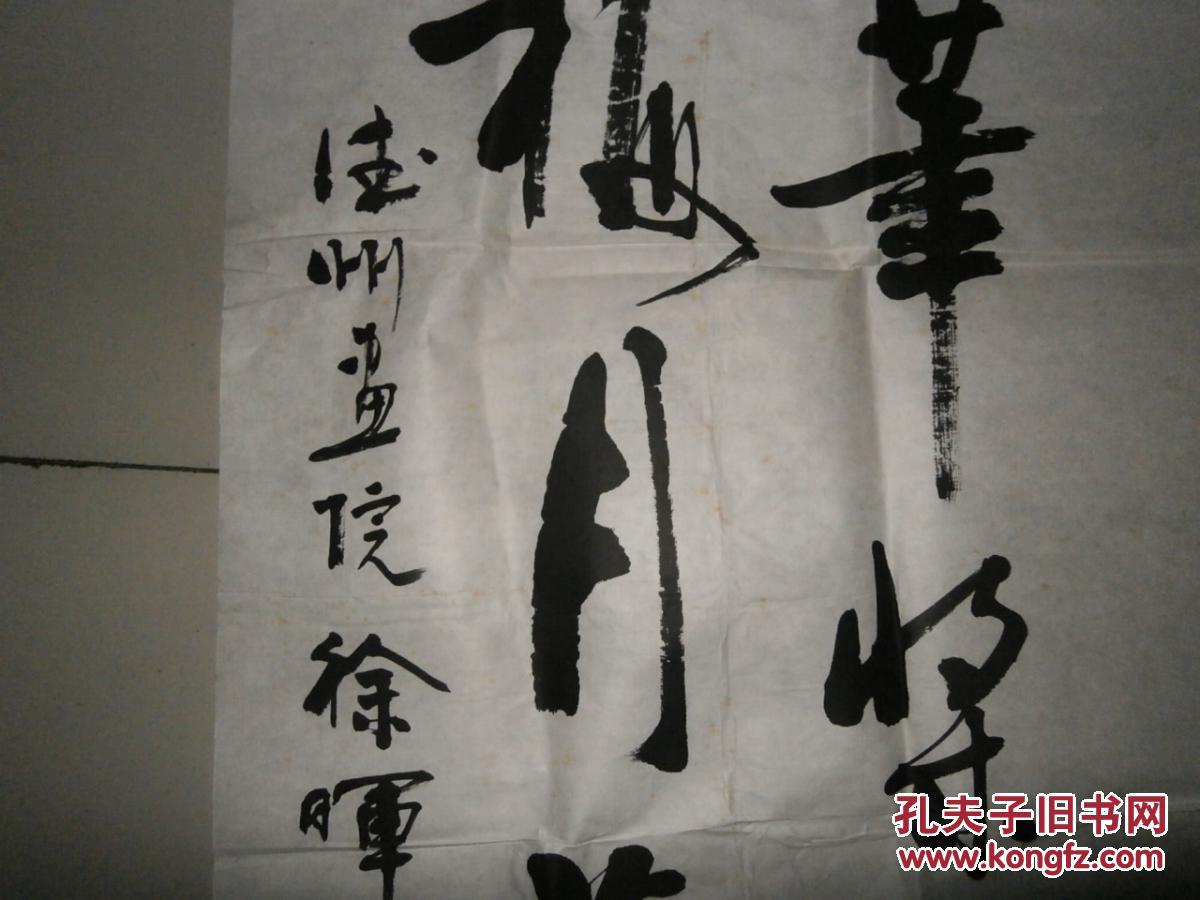 華將
梅月
德州画院徐暉
孔夫子旧书网
www.kongfz.com